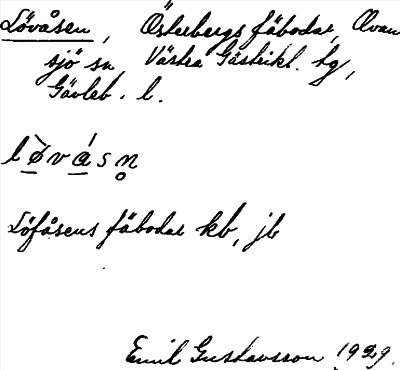 Lövåsen, Österbergs fäbodar, Ovan
sjö sn Västra Gästrikl. hg,
Gävleb. l.
lø̀vásn̥
Löfåsens fäbodar kb, jb
Emil Gustavsson 1929.